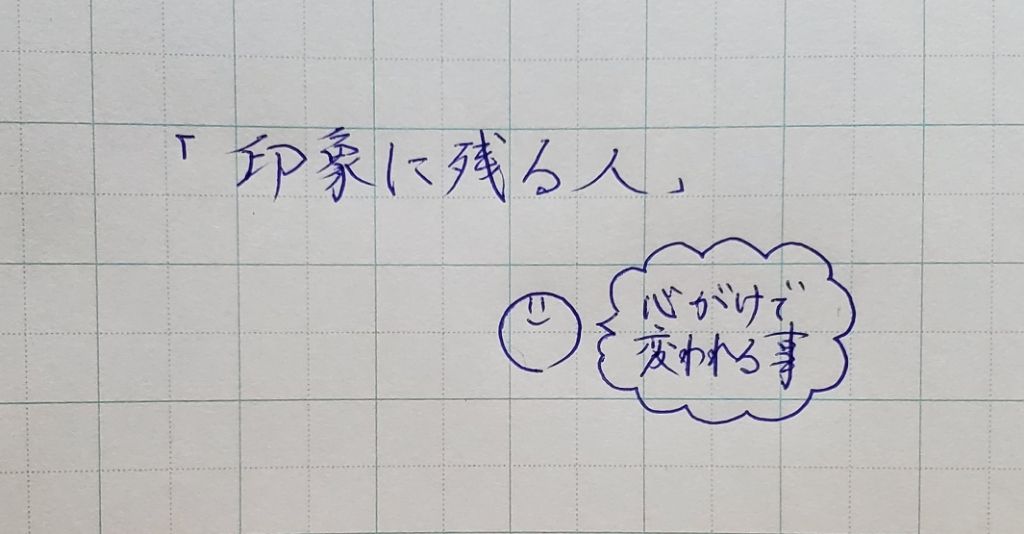 「印象に残る人」
心がけで
変われる事